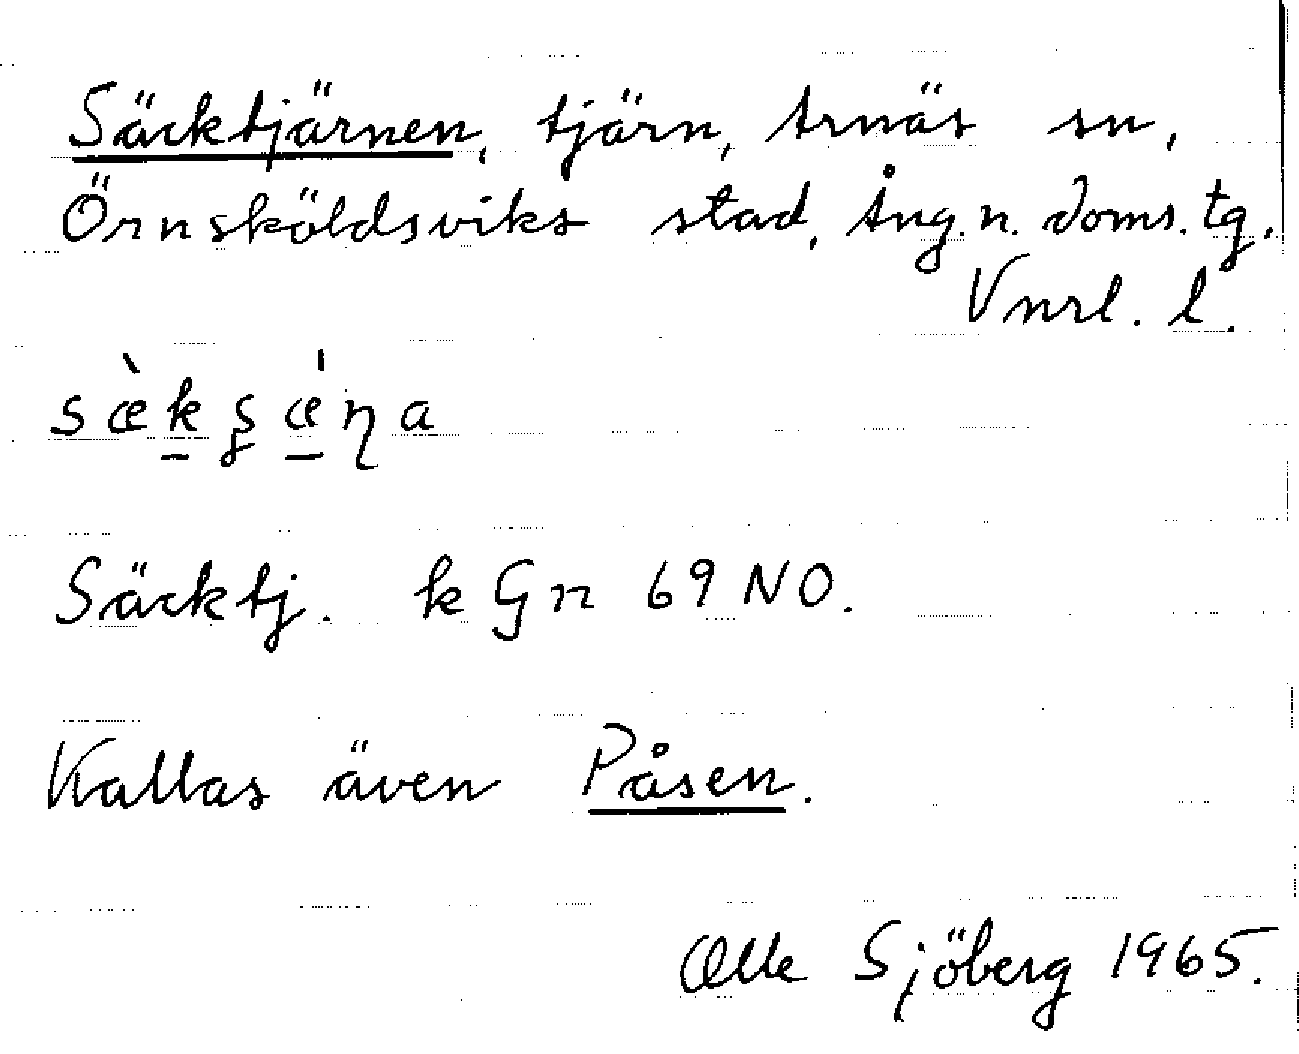 Säcktjärnen, tjärn, Arnäs sn,
Örnsköldsviks stad, Ång. n. doms. tg,
Vnrl. l.
sæ̀k̠ʂǽ̠ɳa
Säcktj. k Gn 69 NO.
Kallas även Påsen.
Olle Sjöberg 1965.